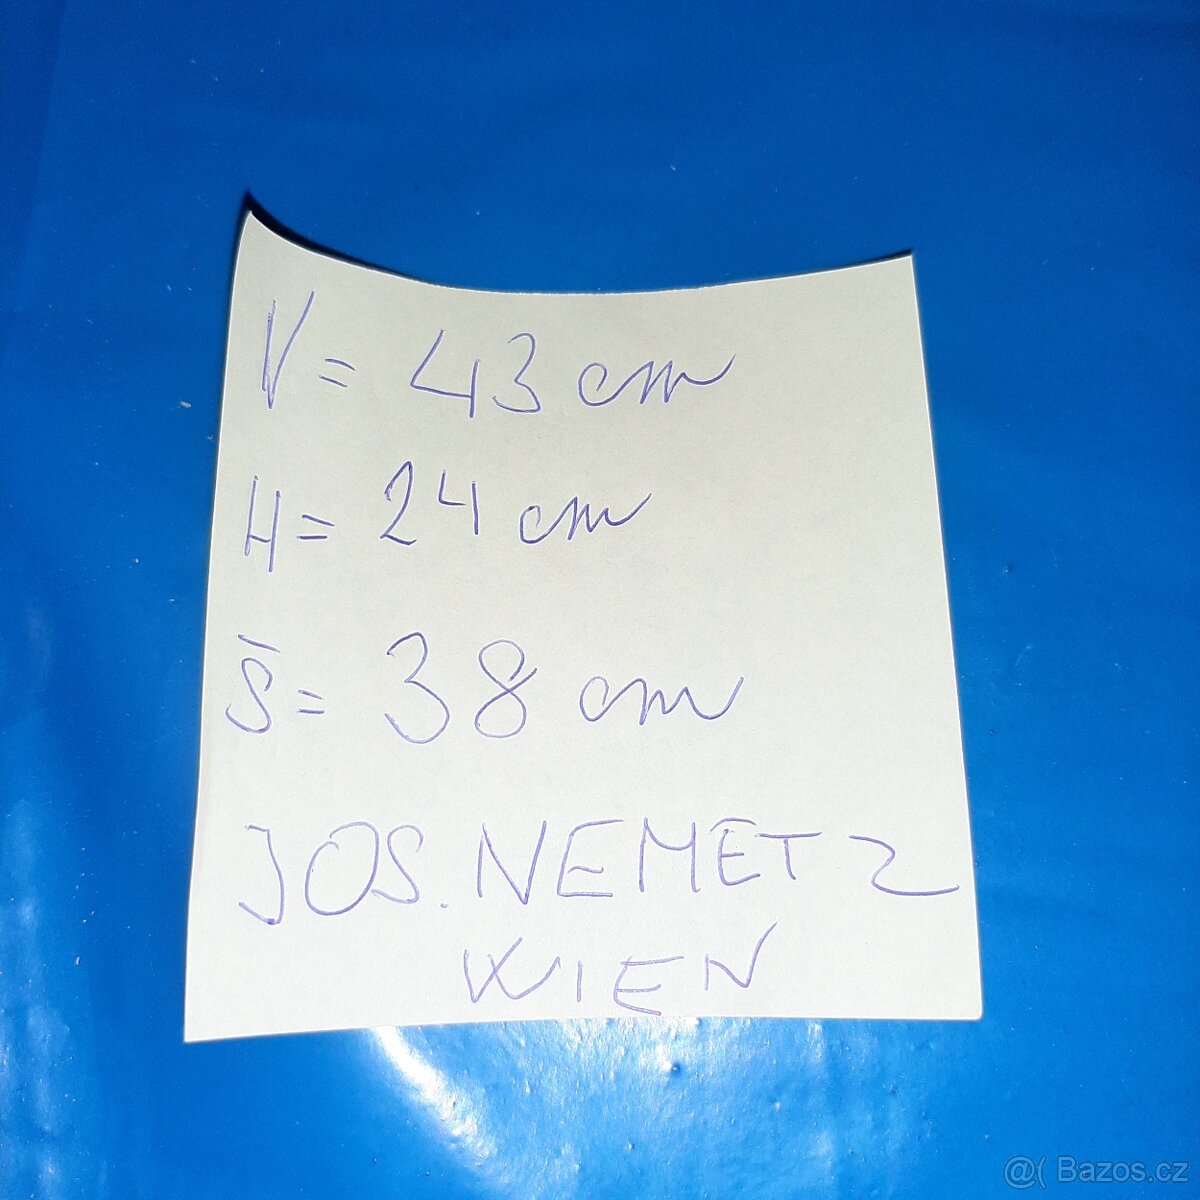 V = 43 cm
H = 24 cm
Š = 38 cm
JOS. NEMETZ
WIEN
@( Bazos.cz